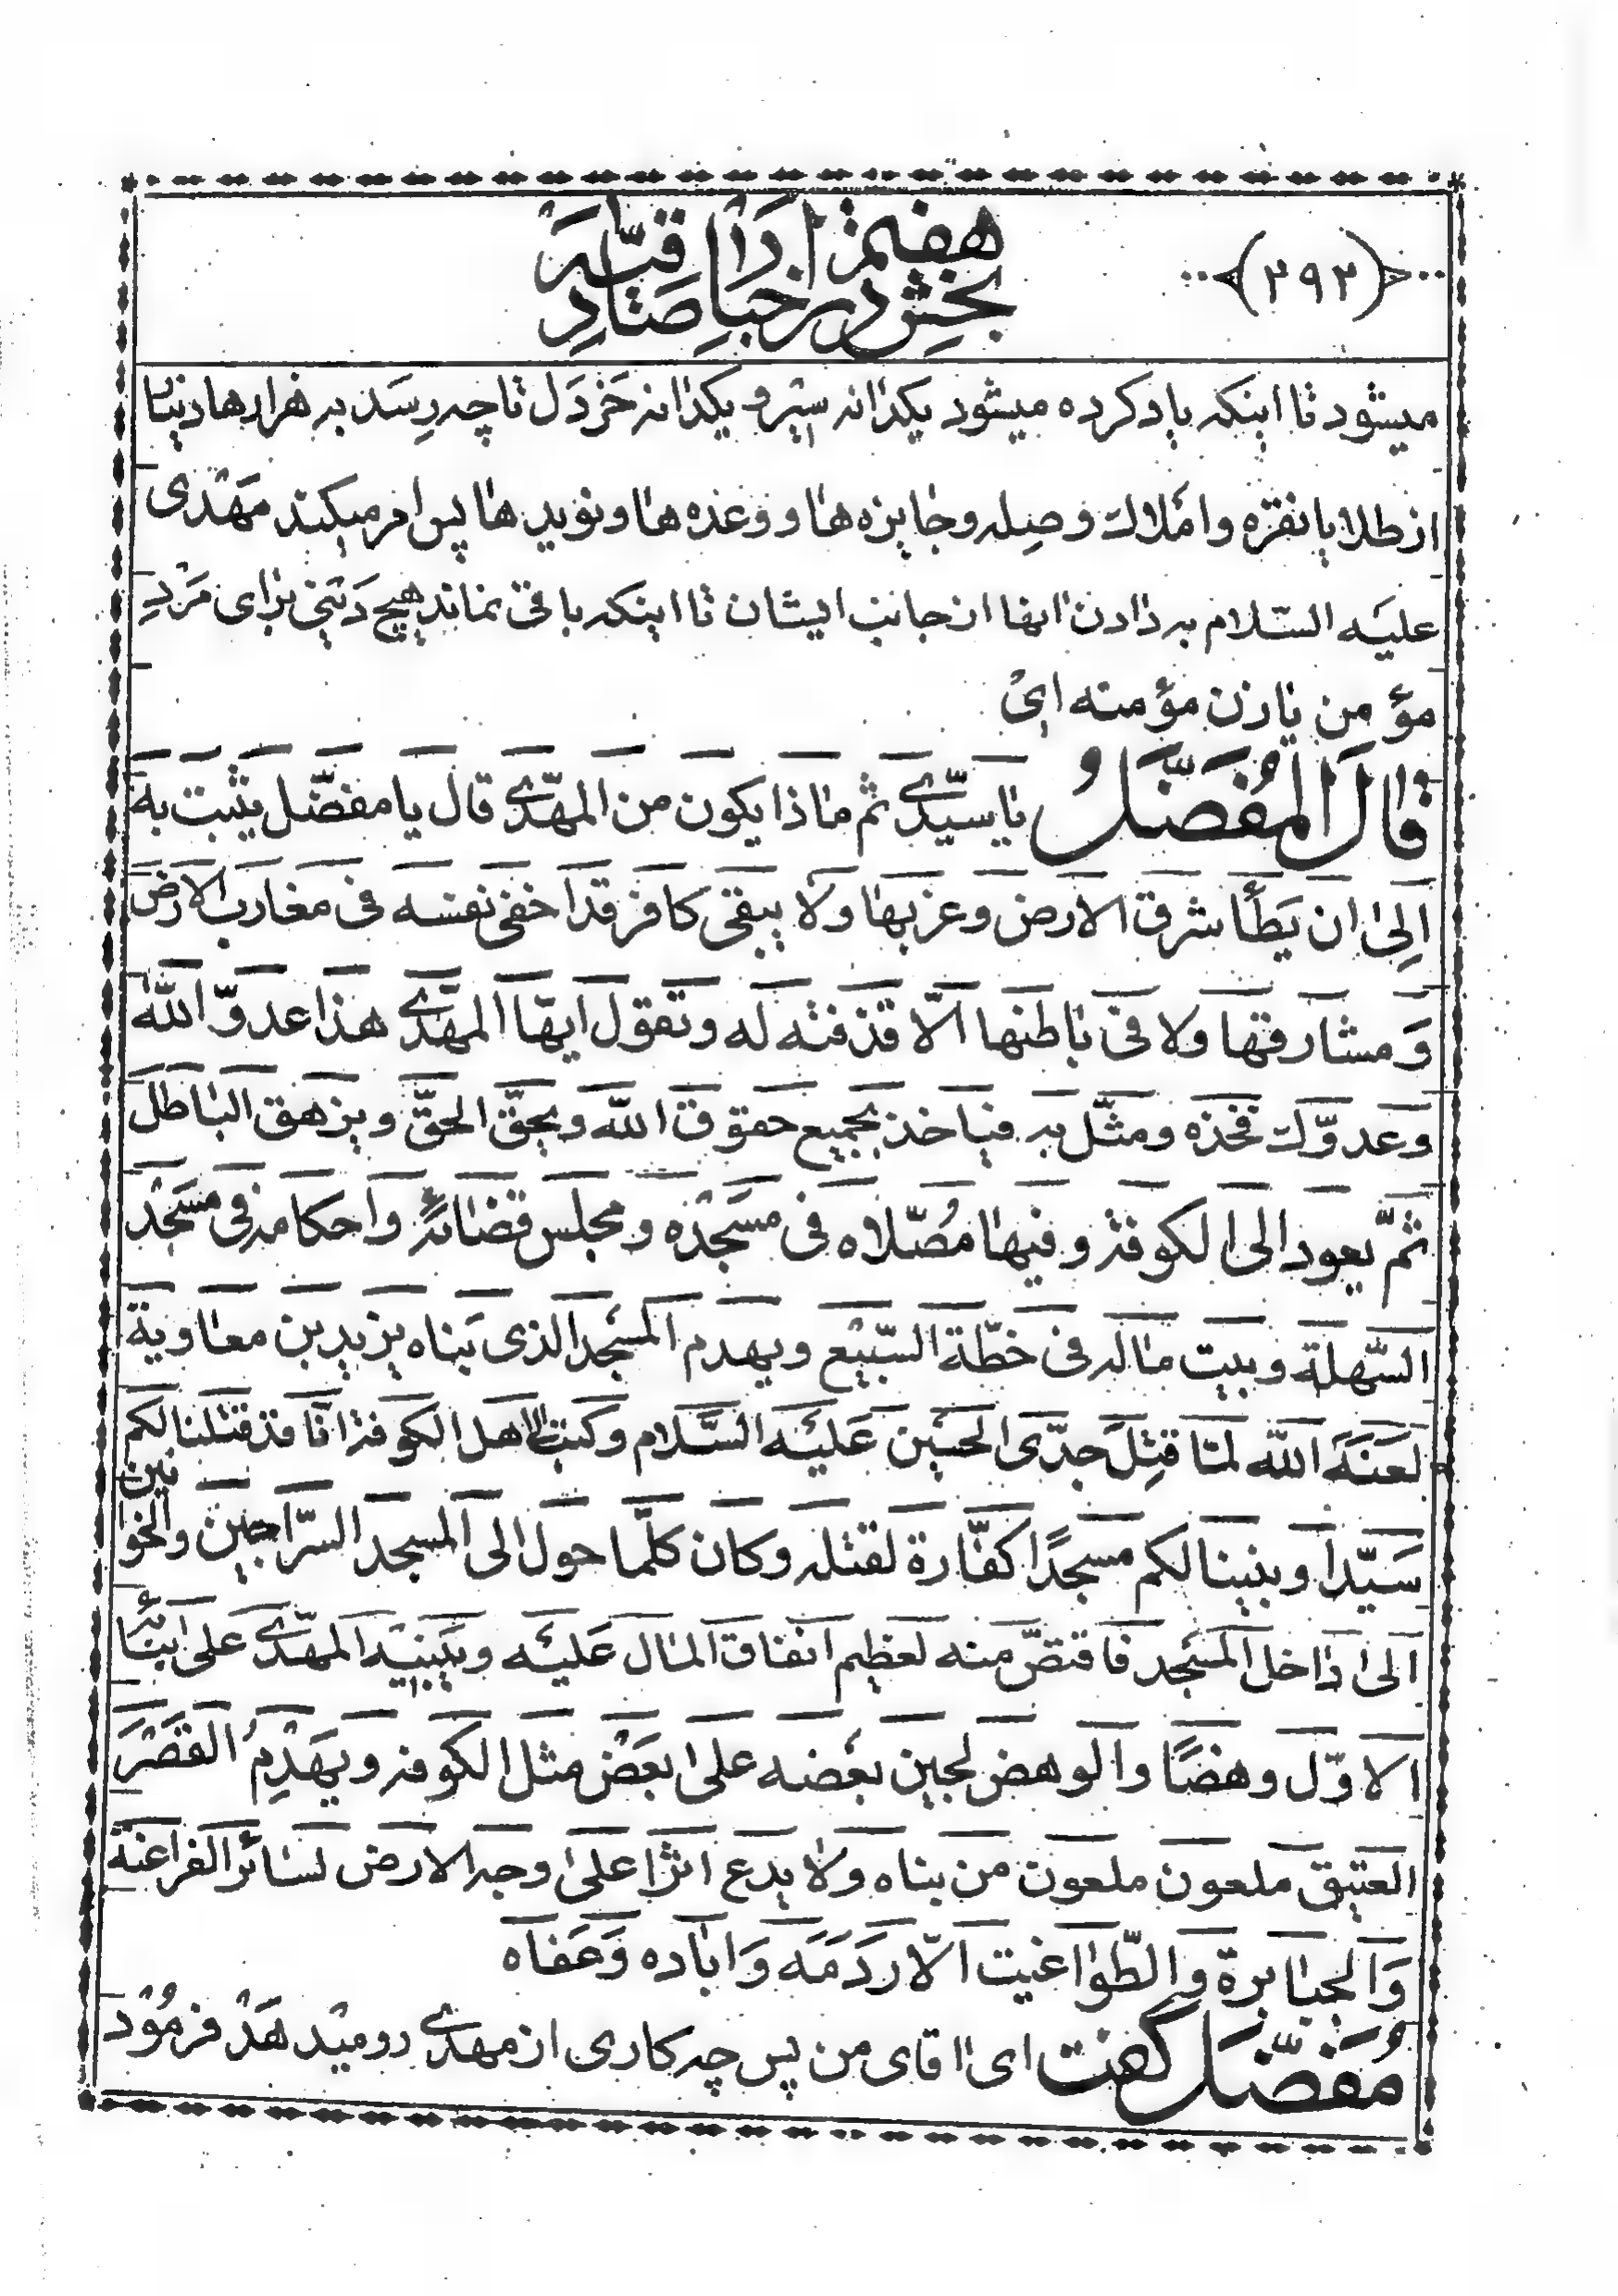 (٢٩٢)
بخش هفتم در اخبار صادقیه
میشود تا اینکه یاد کرده میشود یکدانه سیر و یکدانه خَرْدَل تا چه رِسَد به هزارها دینار
از طلا یا نقره و املاك و صِله و جایزه ها و وعده ها و نوید ها پس امر میکند مَهْدی
علیَه السّلام به دادن انها از جانب ایشان تا اینکه باقی نماند هیچ دَینی برای مَرْدِ
مؤمن یا زن مؤمنه ای
قالَ المُفَضَّلُ یا سیّدی ثم ماذا یکون من المهدّی قال یا مفضّل یثبت به
اِلی ان یَطَأ شرق الارض و غربها ولا یبقی کافر قد اخفی نفسه فی مغارب الارض
وَ مشارقها ولا فی باطنها الّا قذفته له وتقول ایّها المهدّی هذا عدوّ اللّه
وعدوّك فخذه ومثّل به فیاخذ بجمیع حقوق اللّه ویحقّ الحقّ ویزهق الباطل
ثمّ یعود الی الکوفه وفیها مُصّلاه فی مسَجْدَه ومجلس قضائه واحکامه فی مسَجْد
السّهلة وبیت ماله فی خطّة السّبیع ویهدم المسجد الذی بَناه یزید بن معاویة
لَعنَهَ اللّه لمّا قتِلَ جدّی الحسَین عَلیَه السَّلام وکتب الی اهل الکوفه انّا قد قتلنا لکم
سَیّداً وبنینا لکم مسجدًا کفّارة لقتله وکان کلّما حول الی المسجد السّراجین والخوانین
الی داخل المسَجد فاقتصّ منه لعظیم انفاق المال عَلیَه ویَبنیه المهدّی علی بنائه
الاوّل وهضًا والوهض لجین بعضه علی بعَض مثل الکوفه ویَهْدِمُ القَصْرَ
العتیق ملعون ملعون من بناه ولا یدع اثرًا علی وجه الارض لسائر الفراعنة
وَالجبابرة والطّواغیت الّا رَدَمَه وَاباده وَعَفاه
مُفَضّل گفت ای اقای من پس چه کاری از مهدی رو میدهَدْ فرمُوْد